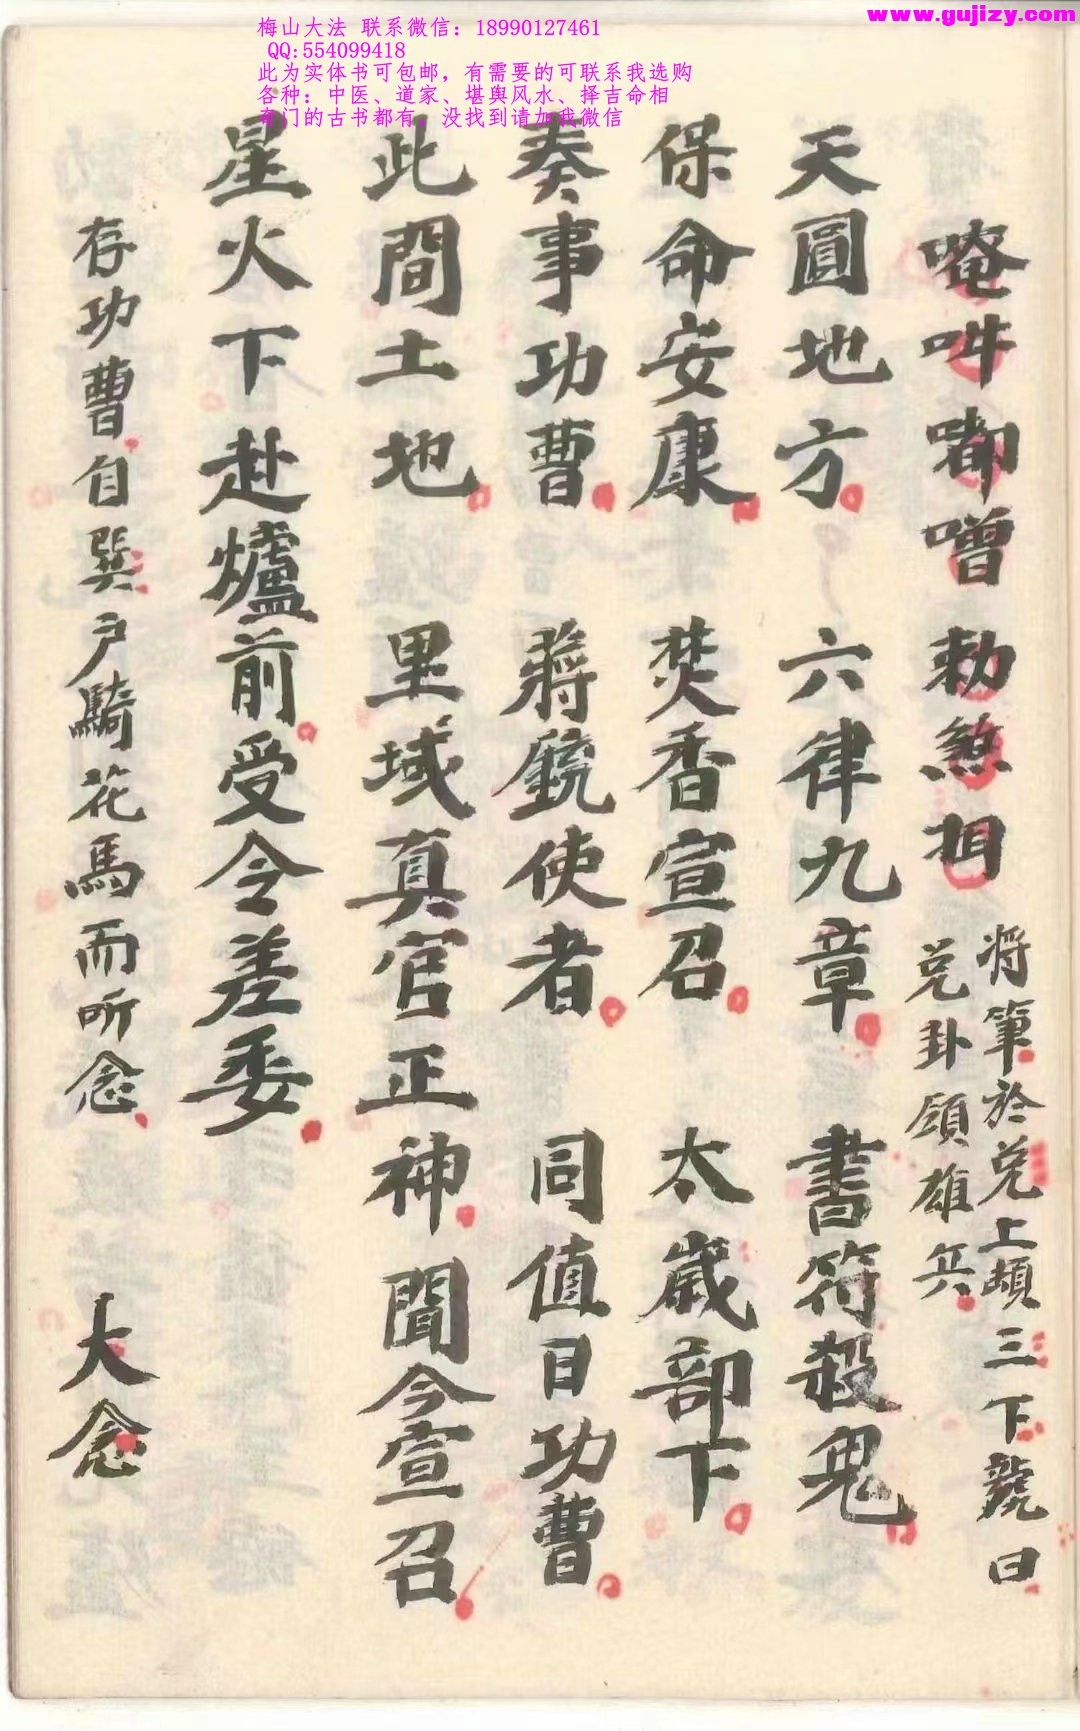 www.gujizy.com
梅山大法 联系微信：18990127461
QQ:554099418
此为实体书可包邮，有需要的可联系我选购
各种：中医、道家、堪舆风水、择吉命相
奇门的古书都有。没找到请加我微信
唵吽嘟噌勅煞抯
将筆於兑上頓三下諕曰
兑卦領雄兵
天圓地方 六律九章 書符殺鬼
保命安康 焚香宣召 太歲部下
奏事功曹 蔣銳使者 同值日功曹
此間土地 里域真官正神 聞今宣召
星火下赴爐前受令差委
存功曹自巽户騎花馬而听念 大念